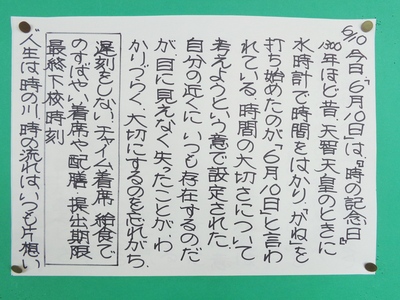 6/10 今日「6月10日」は、『時の記念日』
1300年ほど昔、天智天皇のときに
水時計で時間をはかり、「かね」を
打ち始めたのが“6月10日”と言わ
れている。時間の大切さについて
考えようという意で設定された。
自分の近くにいつも存在するのだ
が、目に見えなく失ったことが、わ
かりづらく、大切にするのを忘れがち。
遅刻をしない、チャイム着席、給食で
のすばやい着席や配膳・提出期限
最終下校時刻
“人生は時の川、時の流れは、いつも片想い